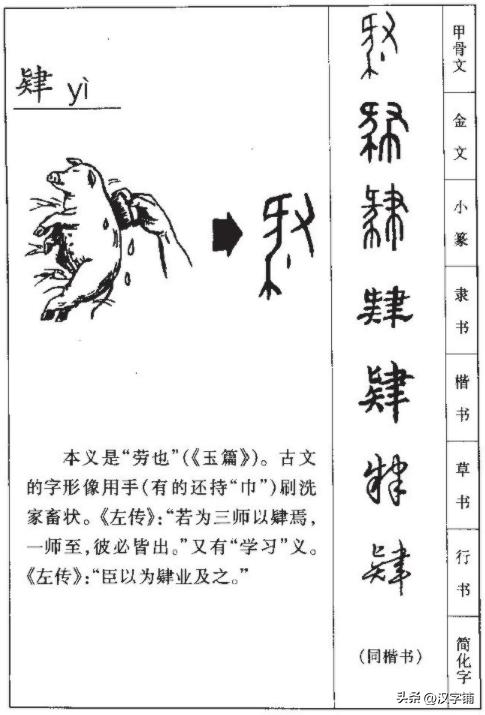 肄 yì
本义是“劳也”(《玉篇》)。古文
的字形像用手(有的还持“巾”)刷洗
家畜状。《左传》:“若为三师以肄焉,
一师至,彼必皆出。”又有“学习”义。
《左传》:“臣以为肄业及之。”
甲骨文
金文
小篆
隶书
肄
楷书
肄
草书
行书
肄
简化字
(同楷书)
头条 @汉字铺